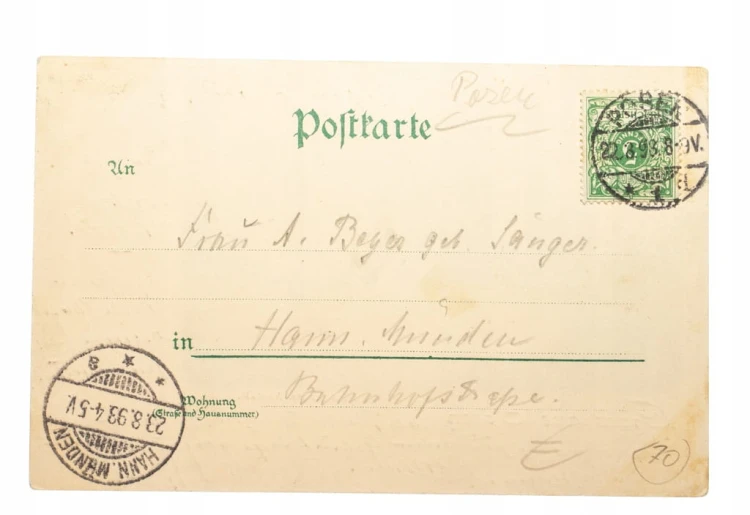 Posen
Postkarte
POSEN
22.8.93.8-9V.
* 1 a
An
Frau A. Beyer geb. Sänger.
in Hann. Münden
Wohnung
(Straße und Hausnummer)
Bahnhofstraße.
HANN. MÜNDEN
23.8.93.4-5V.
* * a
70